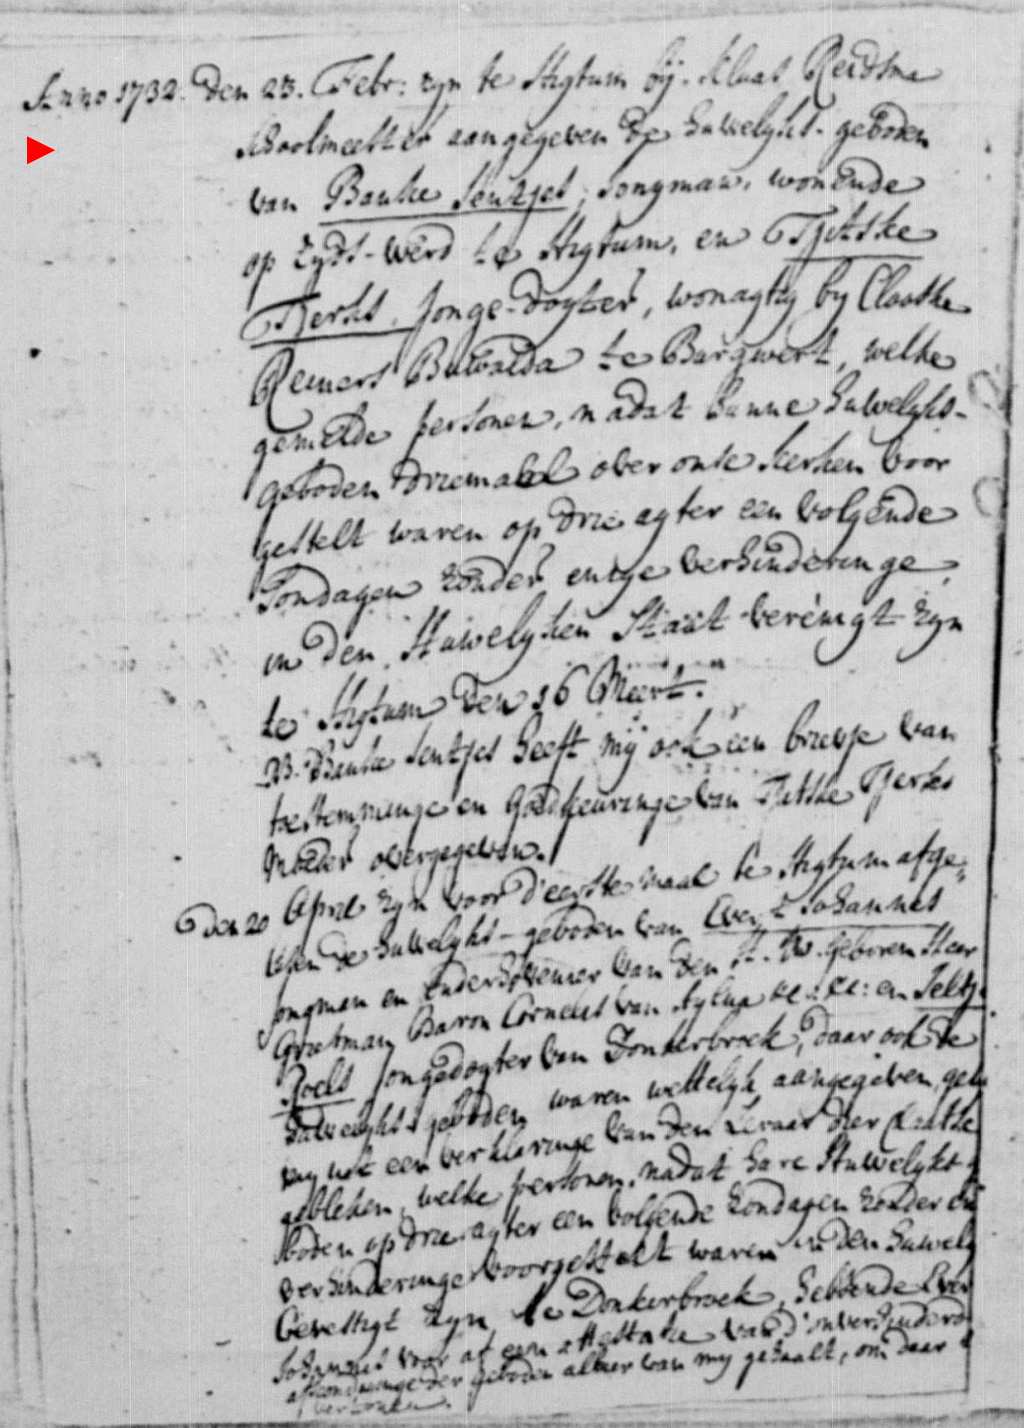 Anno 1732. Den 23. Febr: zyn te Higtum bij Klaas Reidsma
Schoolmeester aangegeven de huwelyks-geboden
van Bauke Sentjes, Jongman, wonende
op Zyds-werd te Higtum, en Tjitske
Tjerks, Jonge-dogter, wonagtig by Claaske
Reiners Buwalda te Burgwert, welke
gemelde personen, nadat hunne huwelyks-
geboden driemaal over onse kerken voor
gestelt waren op drie agter een volgende
Sondagen zonder enige verhinderinge,
in den Huwelyken Staat verenigt zyn
te Higtum den 16 Meert.
NB. Bauke Sentjes heeft mij ook een briefje van
toestemminge en goedkeuringe van Tjitske Tjerks
moeder overgegeven.
Den 20 April zyn voor d'eerste maal te Higtum afge-
lesen de huwelyks-geboden van Evert Johannes
jongman en van den H. W. geboren Heer
Grietman Baron Cornelis van Aylva en
Roels Jongedogter van Donkerbroek, daar ook de
huwelyks-geboden waren wettelyk aangegeven,
my uit een verklaringe van den Leraar dier
gebleken, welke personen, nadat hare Huwelyks-
boden op drie agter een volgende Zondagen zonder
verhinderinge voorgestelt waren in den
bevestigt zyn te Donkerbroek, hebbende
Johannes voor af een attestatie van d'onverhinderde
afkondiginge der geboden alhier van my gehaalt, om daar
vertonen.